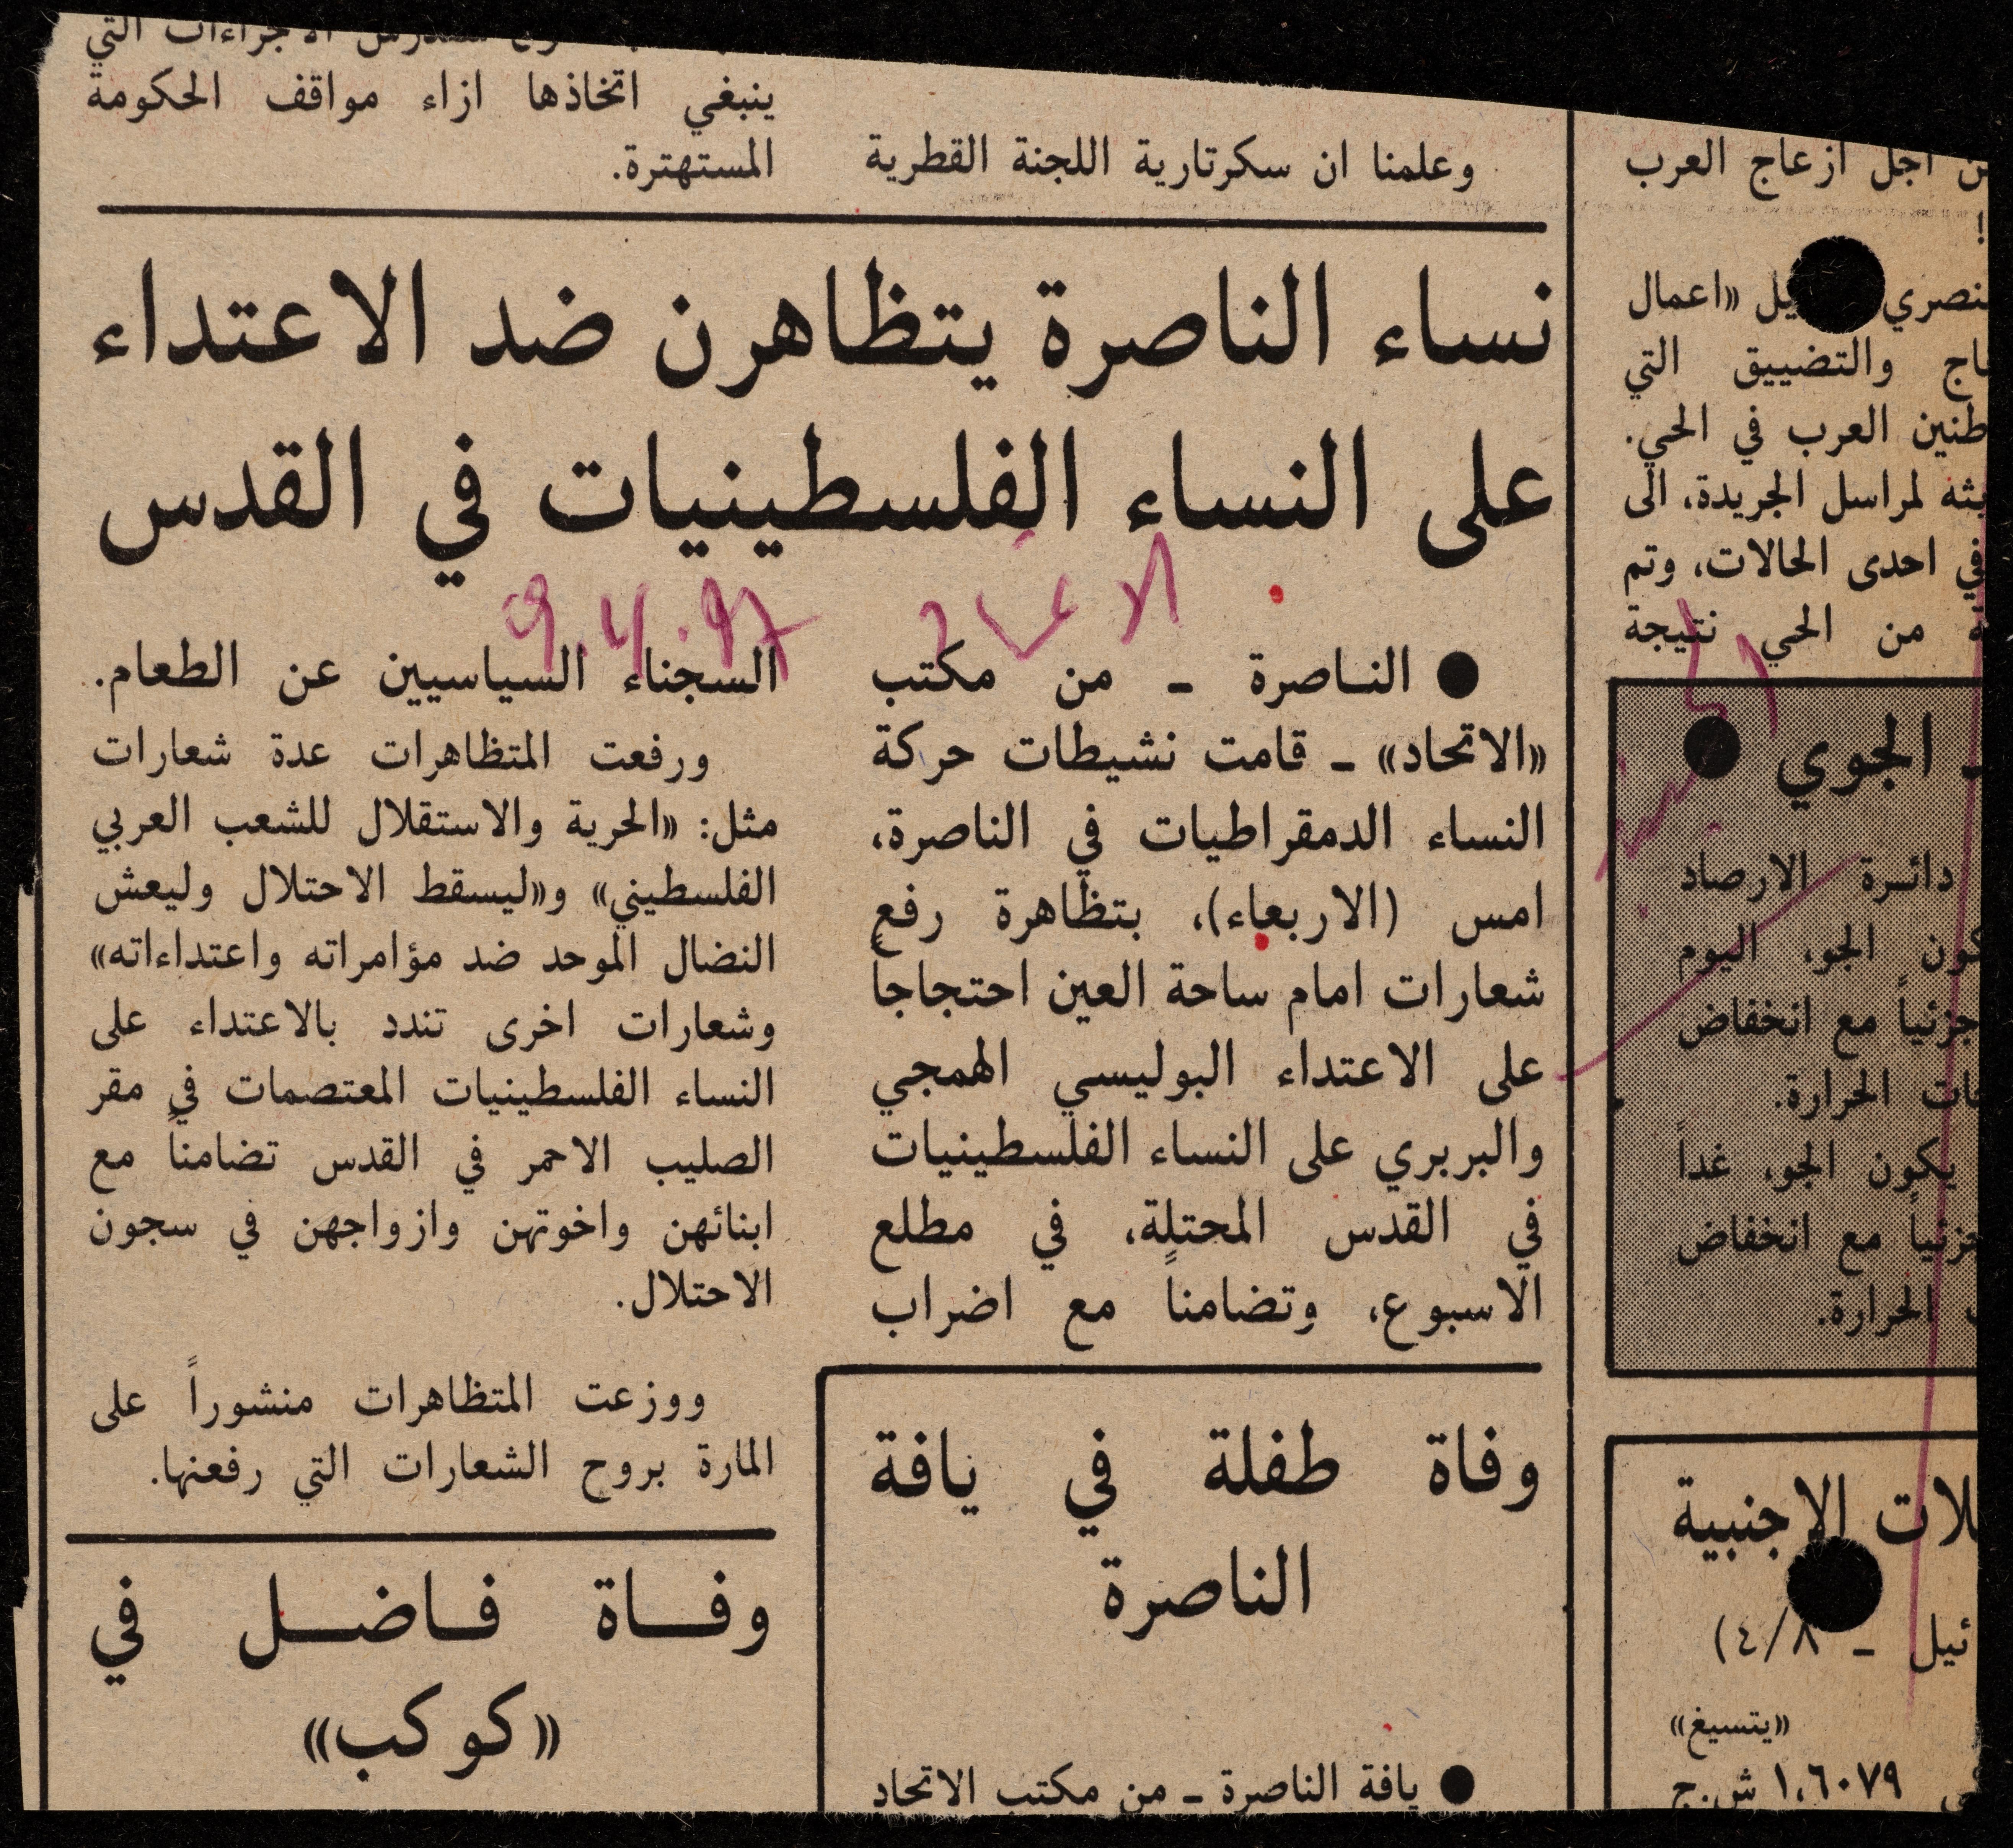 ن اجل ازعاج العرب
!
نصري يل «اعمال
اج والتضييق التي
طنين العرب في الحي.
يثه لمراسل الجريدة، الى
في احدى الحالات، وتم
ة من الحي نتيجة
ـ الجوي ●
دائـرة الارصاد
كون الجو، اليوم
جزئياً مع انخفاض
ات الحرارة.
يكون الجو، غداً
جزئياً مع انخفاض
الحرارة.
لات الاجنبية
ئيل ـ ٤/٨)
«يتسيغ»
١،٦٠٧٩ ش.ج
وعلمنا ان سكرتارية اللجنة القطرية
الاجراءات التي
ينبغي اتخاذها ازاء مواقف الحكومة
المستهترة.
نساء الناصرة يتظاهرن ضد الاعتداء
على النساء الفلسطينيات في القدس
9.4.97
● النـاصرة ـ من مكتب
«الاتحاد» ـ قامت نشيطات حركة
النساء الدمقراطيات في الناصرة،
امس (الاربعاء)، بتظاهرة رفع
شعارات امام ساحة العين احتجاجاً
على الاعتداء البوليسي الهمجي
والبربري على النساء الفلسطينيات
في القدس المحتلة، في مطلع
الاسبوع، وتضامناً مع اضراب
السجناء السياسيين عن الطعام.
ورفعت المتظاهرات عدة شعارات
مثل: «الحرية والاستقلال للشعب العربي
الفلسطيني» و«ليسقط الاحتلال وليعش
النضال الموحد ضد مؤامراته واعتداءاته»
وشعارات اخرى تندد بالاعتداء على
النساء الفلسطينيات المعتصمات في مقر
الصليب الاحمر في القدس تضامناً مع
ابنائهن واخوتهن وازواجهن في سجون
الاحتلال.
ووزعت المتظاهرات منشوراً على
المارة بروح الشعارات التي رفعنها.
وفاة طفلة في يافة
الناصرة
● يافة الناصرة ـ من مكتب الاتحاد
وفـــاة فـاضــل في
«كوكب»